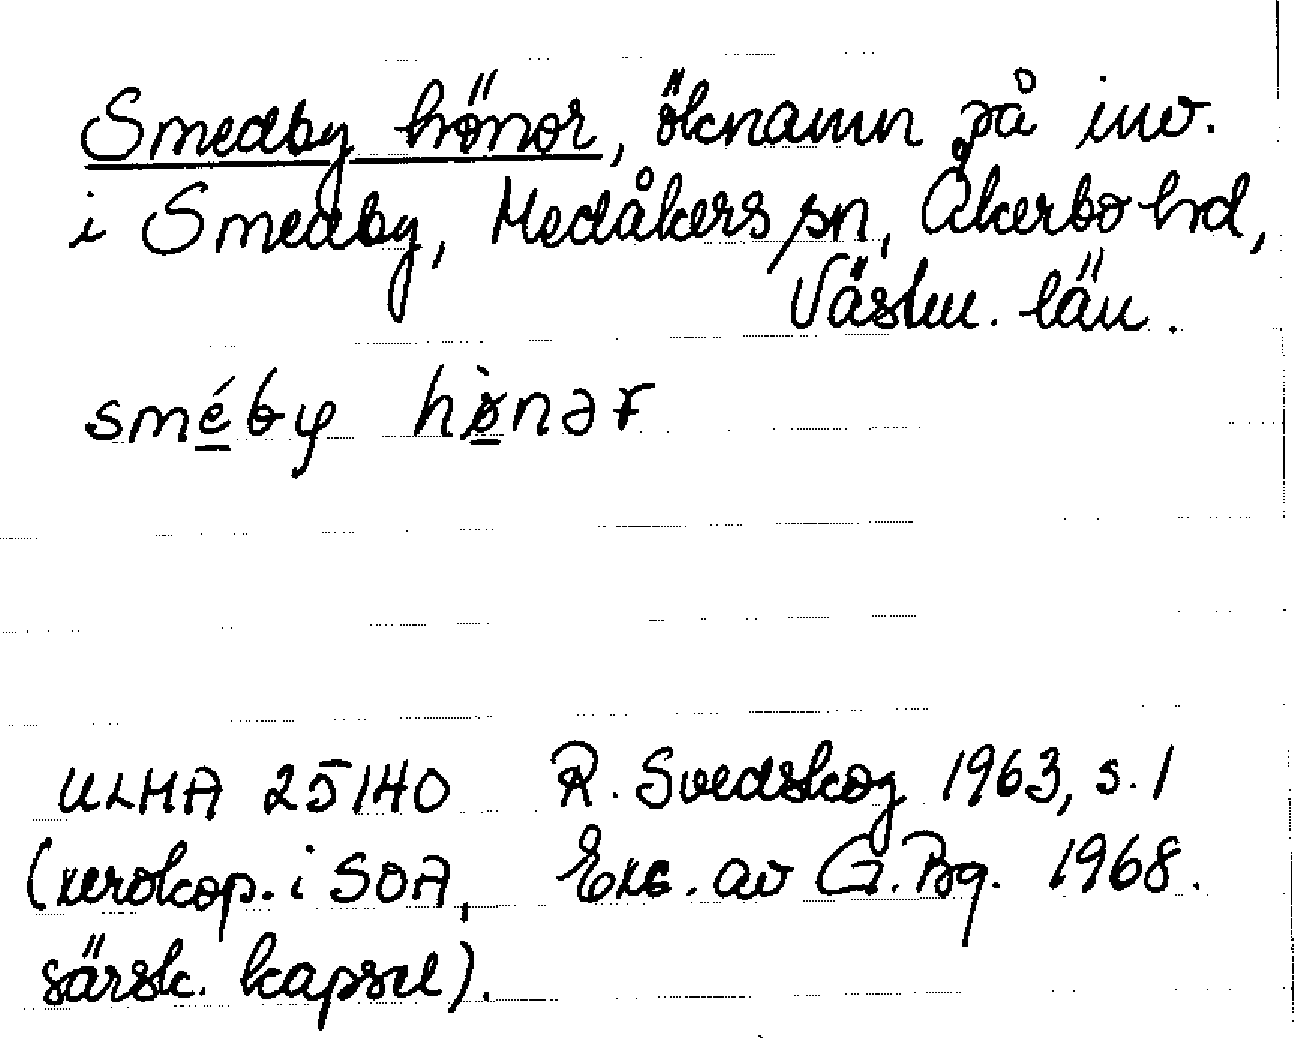 Smedby hönor, öknamn på inv.
i Smedby, Medåkers sn, Åkerbo hd,
Västm. län.
sméby hø̀nər
ULMA 25140 R. Svedskog 1963, s. 1
(xerokop. i SOA, Exc. av G. Bq. 1968.
särsk. kapsel).